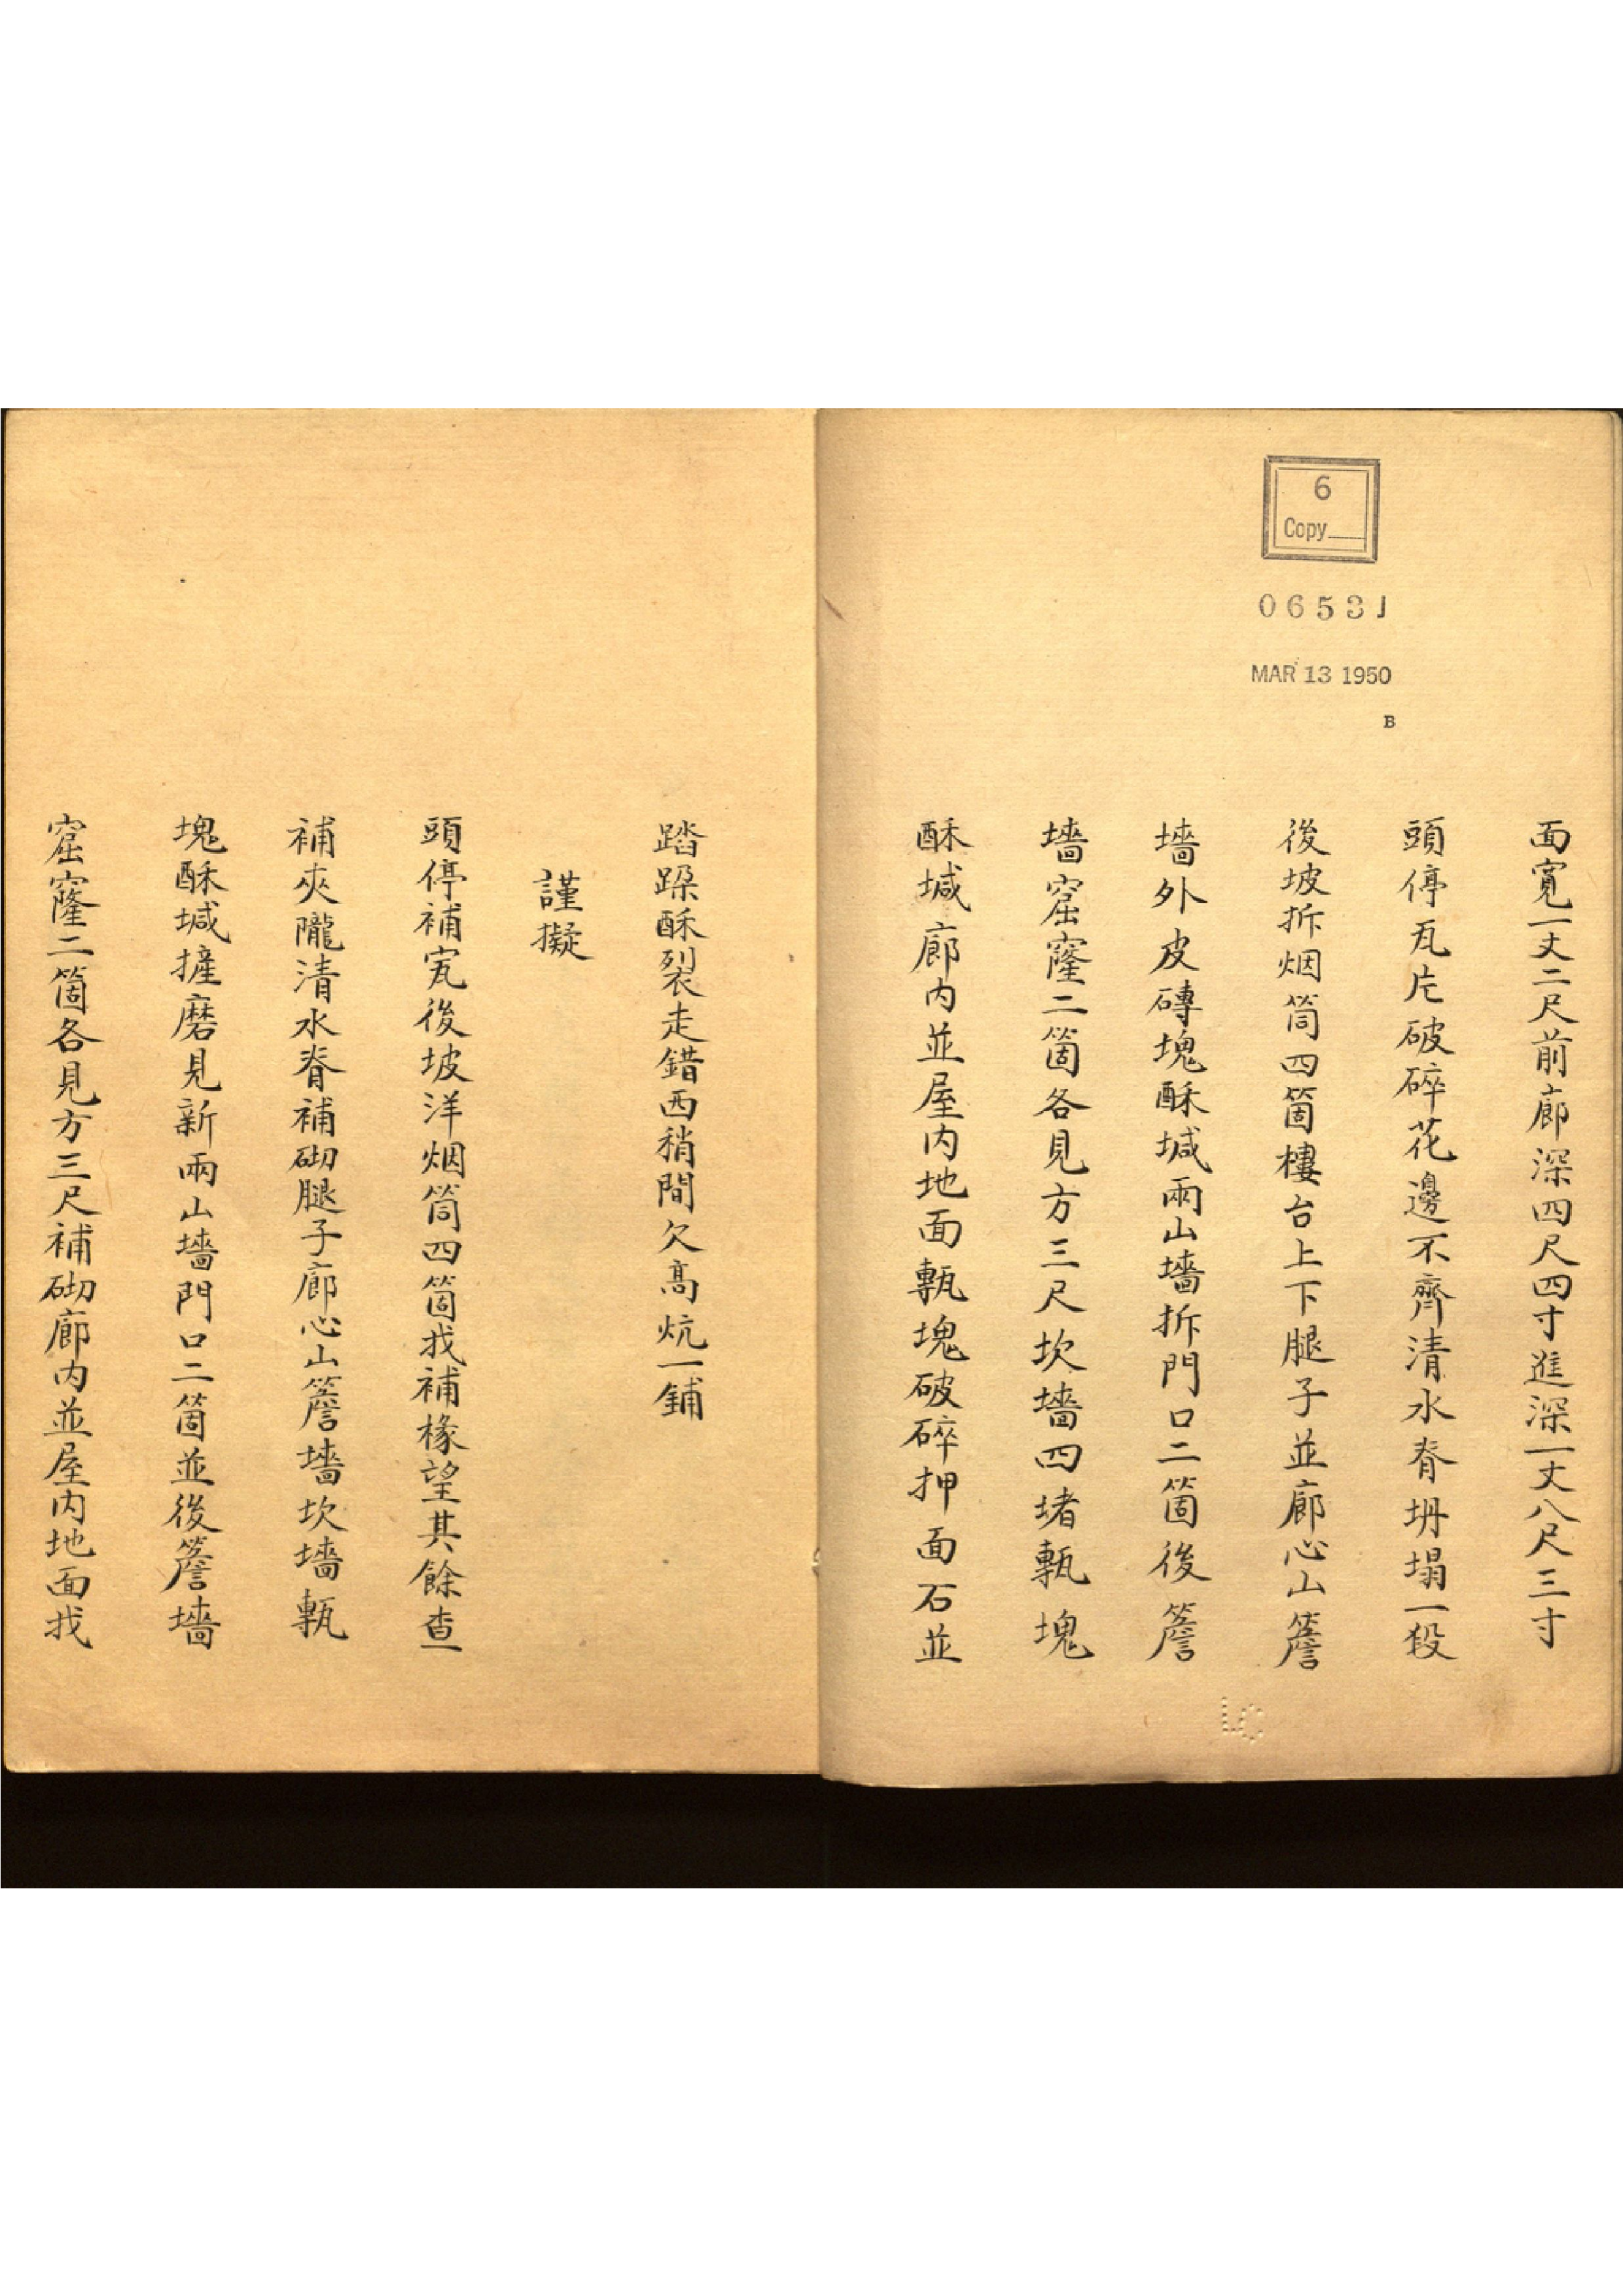 6
Copy
0653J
MAR 13 1950
B
面寬一丈二尺前廊深四尺四寸進深一丈八尺三寸
頭停瓦片破碎花邊不齊清水脊坍塌一段
後坡拆烟筒四箇樓台上下腿子並廊心山簷
墻外皮磚塊酥堿兩山墻拆門口二箇後簷
墻窟窿二箇各見方三尺坎墻四堵甎塊
酥堿廊內並屋內地面甎塊破碎押面石並
踏跺酥裂走錯西稍間欠高炕一鋪
謹擬
頭停補寬後坡洋烟筒四箇找補椽望其餘查
補夾隴清水脊補砌腿子廊心山簷墻坎墻甎
塊酥堿摌磨見新兩山墻門口二箇並後簷墻
窟窿二箇各見方三尺補砌廊內並屋內地面找
LC